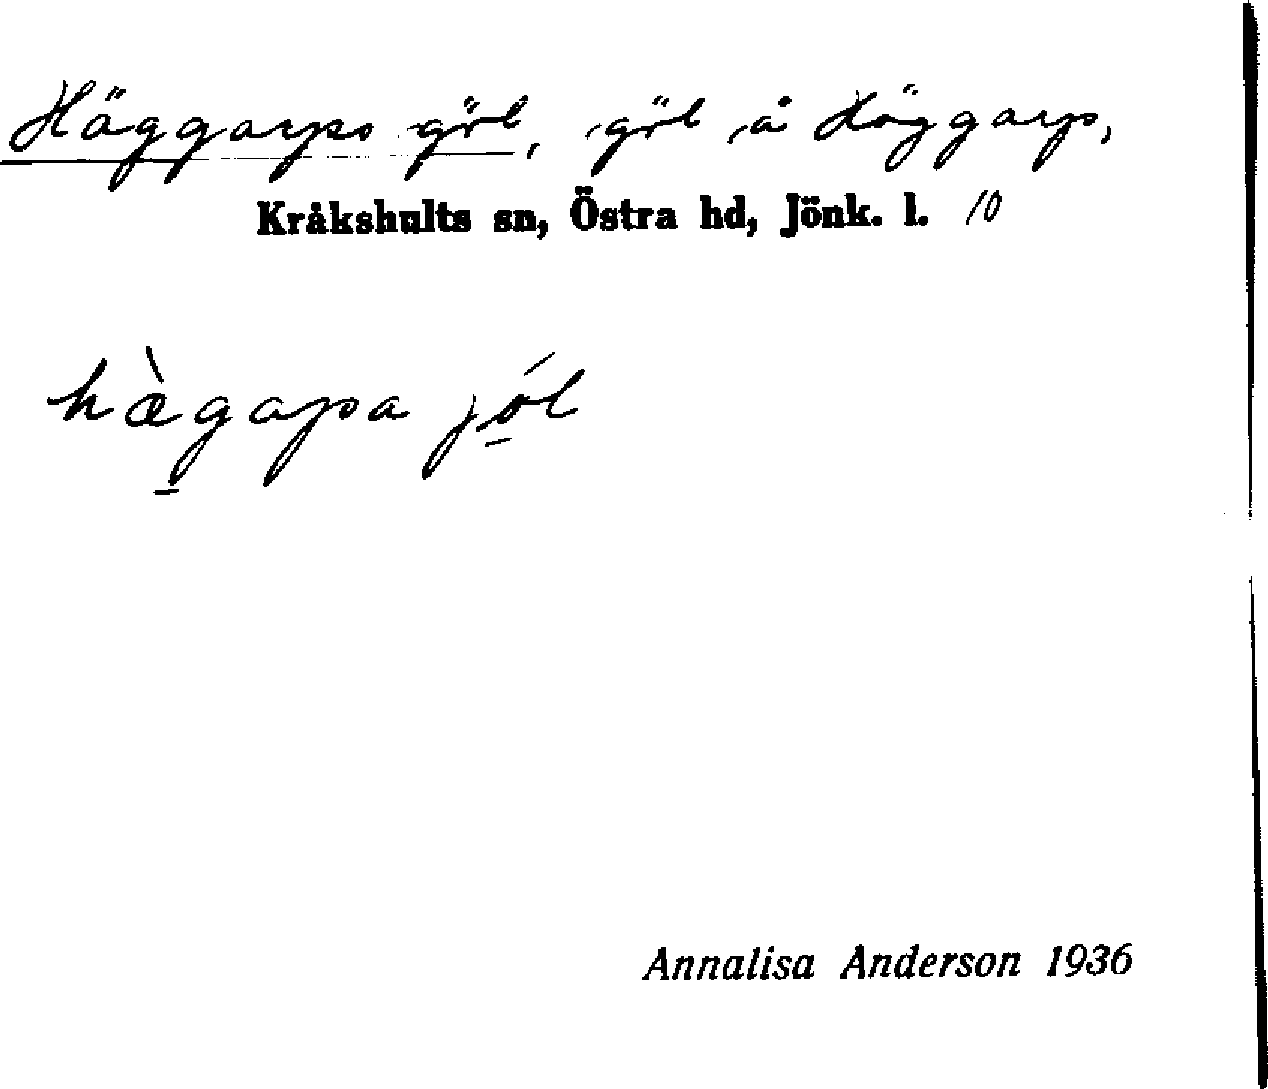 Häggarps göl, göl å Häggarp,
Kråkshults sn, Östra hd, Jönk. l. 10
hæ̀gapa jól
Annalisa Anderson 1936